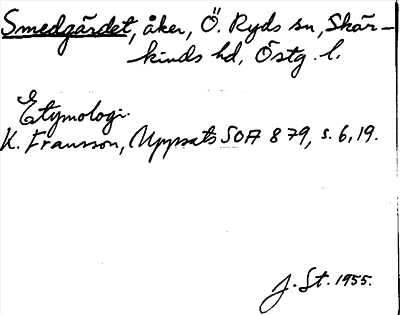 Smedgärdet, åker, Ö. Ryds sn, Skär-
kinds hd, Östg. l.
Etymologi.
K. Fransson, Uppsats SOA 879, s. 6, 19.
J. St. 1955.